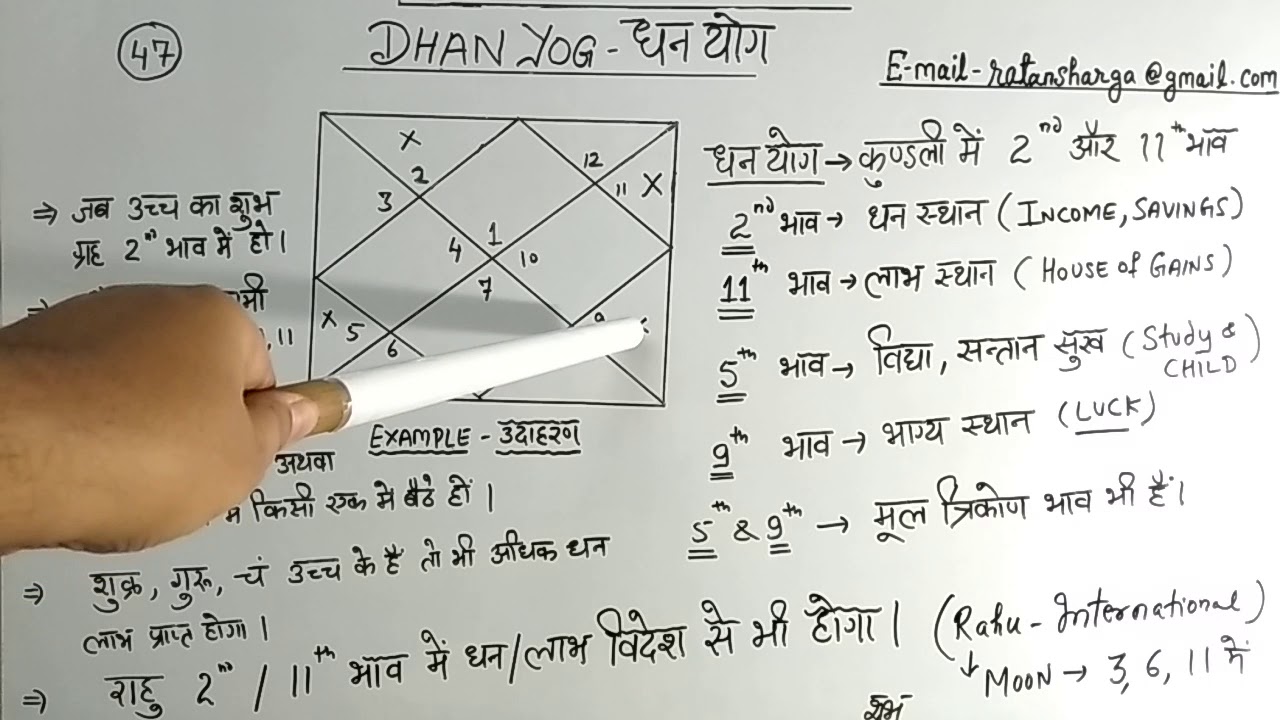 47
DHAN YOG - धन योग
E-mail-ratansharga@gmail.com
⇒ जब उच्च का शुभ
ग्रह 2nd भाव में हो।
11
X
2
3
12
11 X
4
1
10
7
X 5
6
9
EXAMPLE - उदाहरण
अथवा
में किसी एक में बैठे हों।
⇒ शुक्र, गुरू, चं उच्च के हैं तो भी अधिक धन
लाभ प्राप्त होगा।
⇒ राहु 2nd / 11th भाव में धन/लाभ विदेश से भी होगा। (Rahu - International)
↓ MOON → 3, 6, 11 में
शुभ
धन योग → कुण्डली में 2nd और 11th भाव
2nd भाव → धन स्थान (INCOME, SAVINGS)
11th भाव → लाभ स्थान (HOUSE of GAINS)
5th भाव → विद्या, सन्तान सुख (Study & CHILD)
9th भाव → भाग्य स्थान (LUCK)
5th & 9th → मूल त्रिकोण भाव भी हैं।